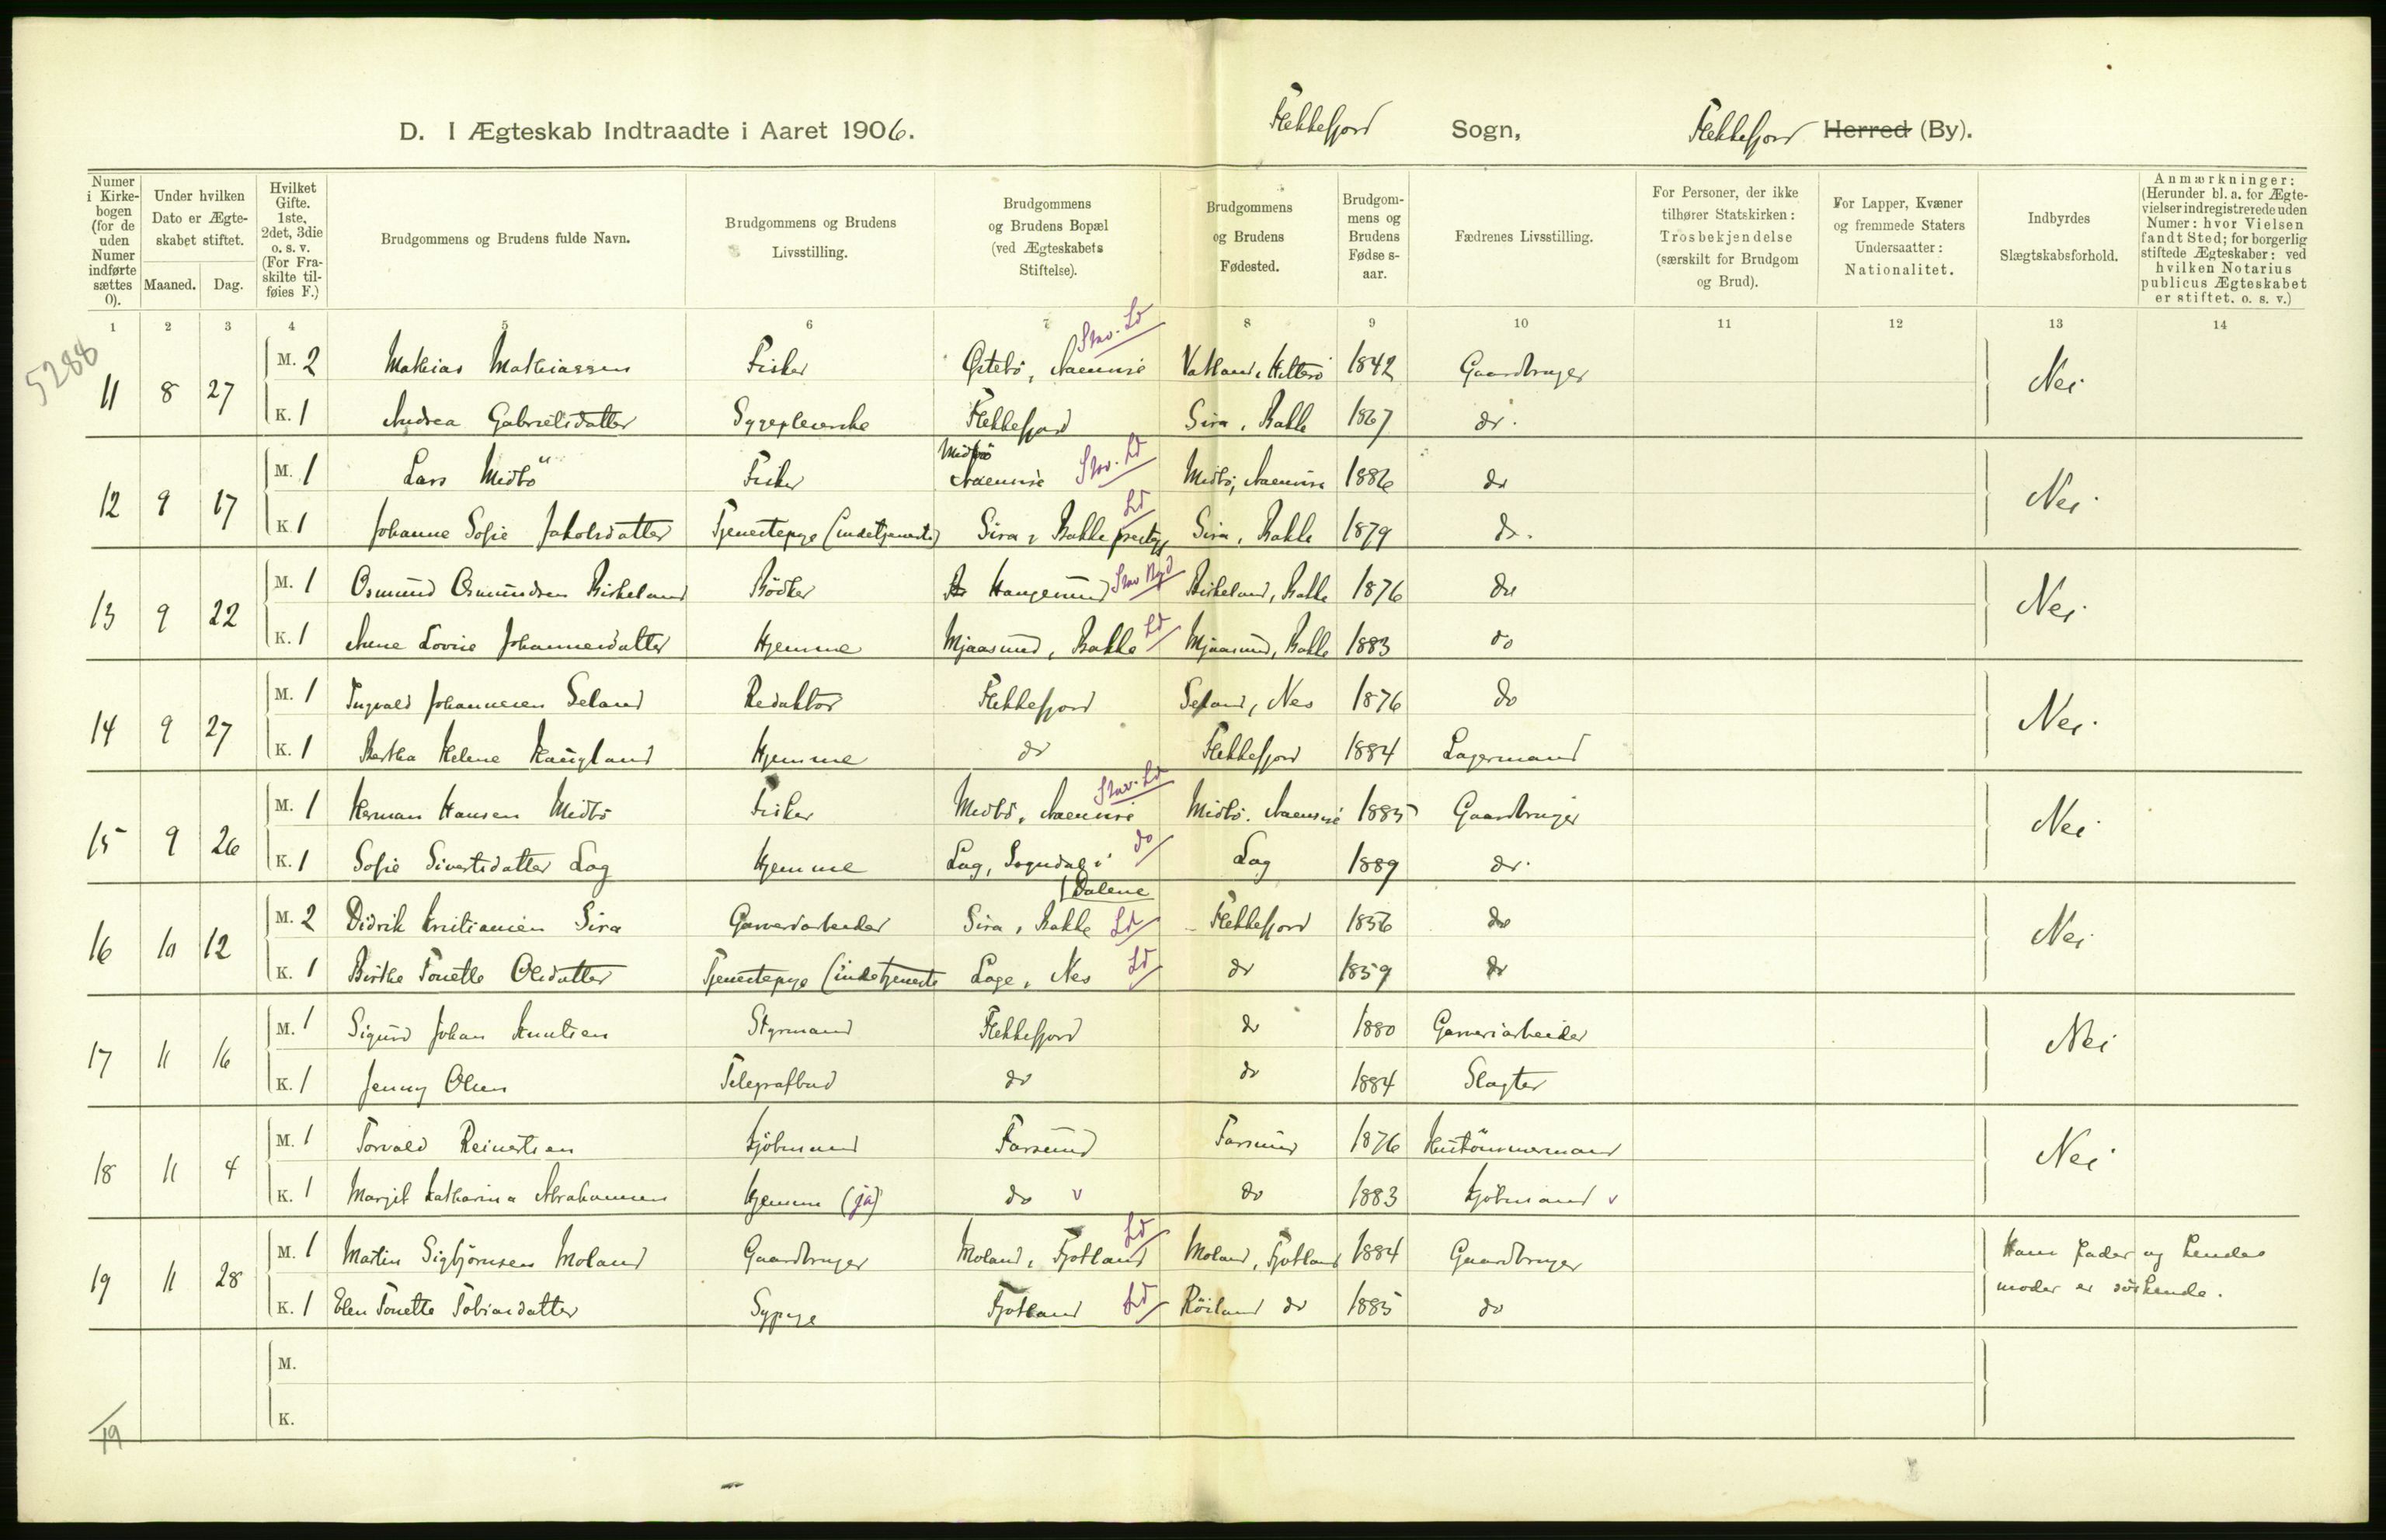 D. I Ægteskab Indtraadte i Aaret 1906. Flekkefjord Sogn, Flekkefjord Herred (By).
Numer i Kirkebogen (for de uden Numer indførte sættes 0). Under hvilken Dato er Ægteskabet stiftet. Maaned. Dag. Hvilket Gifte. 1ste, 2det, 3die o. s. v. (For Fraskilte tilføies F.) Brudgommens og Brudens fulde Navn. Brudgommens og Brudens Livsstilling. Brudgommens og Brudens Bopæl (ved Ægteskabets Stiftelse). Brudgommens og Brudens Fødested. Brudgommens og Brudens Fødselsaar. Fædrenes Livsstilling. For Personer, der ikke tilhører Statskirken: Trosbekjendelse (særskilt for Brudgom og Brud). For Lapper, Kvæner og fremmede Staters Undersaatter: Nationalitet. Indbyrdes Slægtskabsforhold. Anmærkninger: (Herunder bl. a. for Ægtevielser indregistrerede uden Numer: hvor Vielsen fandt Sted; for borgerlig stiftede Ægteskaber: ved hvilken Notarius publicus Ægteskabet er stiftet. o. s. v.)
1 2 3 4 5 6 7 8 9 10 11 12 13 14
5288
Stav. Ld
M. 2 Mathias Mathiassen Fisker Østebö, Naerviné Vatland, Hitterö 1842 Gaardbruger
11 8 27 Nei
K. 1 Andrea Gabrielsdatter Sygepleierske Flekkefjord Sira, Bakke 1867 do.
Midbö Stav. Ld
M. 1 Lars Midbö Fisker Midbö, 1886 do
12 9 17 Nei
Ld
K. 1 Johanne Sofie Jakobsdatter Tjenestepige (indetjeneste) Sira, Bakke prestgj Sira, Bakke 1879 do.
M. 1 Osmund Osmundsen Birkeland Bödker Haugesund Stav Byd Birkeland, Bakke 1876 do
13 9 22 Nei
K. 1 Anne Lovise Johannesdatter Hjemme Mjaasund, Bakke Ld Mjaasund, Bakke 1883 do
M. 1 Ingvald Johannesen Seland Redaktör Flekkefjord Seland, Nes 1876 do
14 9 27 Nei
K. 1 Bertha Helene Haugland Hjemme do Flekkefjord 1884 Lagermand
Stav. Ld
M. 1 Herman Hansen Midbö Fisker Midbö, Midbö. 1885 Gaardbruger
15 9 26 Nei
K. 1 Sofie Sivertsdatter Log Hjemme Log, Sogndal i do Log 1889 do.
Dalene
M. 2 Didrik Kristiansen Sira Garveriarbeider Sira, Bakke Ld Flekkefjord 1856 do
16 10 12 Nei
K. 1 Birthe Tonette Olsdatter Tjenestepige (indetjeneste Loge, Nes Ld do 1859 do
M. 1 Sigurd Johan Knutsen Styrmand Flekkefjord do 1880 Garveriarbeider
17 11 16 Nei
K. 1 Jenny Olsen Telegrafbud do do 1884 Slagter
M. 1 Torvald Reinertsen Kjöbmand Farsund Farsund 1876 Hustömmermand
18 11 4 Nei
K. 1 Margit Katharina Abrahamsen Hjemme (ja) do v do 1883 Kjöbmand v
Ld
M. 1 Martin Sigbjörnsen Moland Gaardbruger Moland, Fjotland Moland, Fjotland 1884 Gaardbruger Hans fader og hendes
19 11 28 moder er söskende.
K. 1 Elen Tonette Tobiasdatter Sypige Fjotland Ld Röiland do 1885 do
M.
K.
19